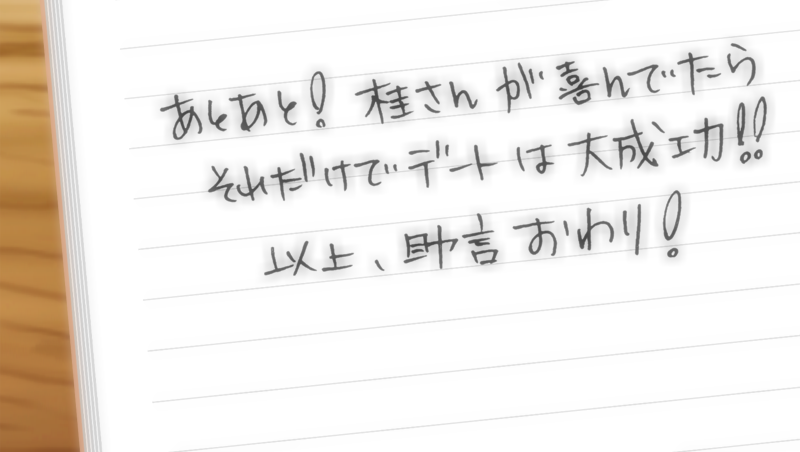 あとあと! 桂さんが喜んでたら
それだけでデートは大成功!!
以上、助言おわり!